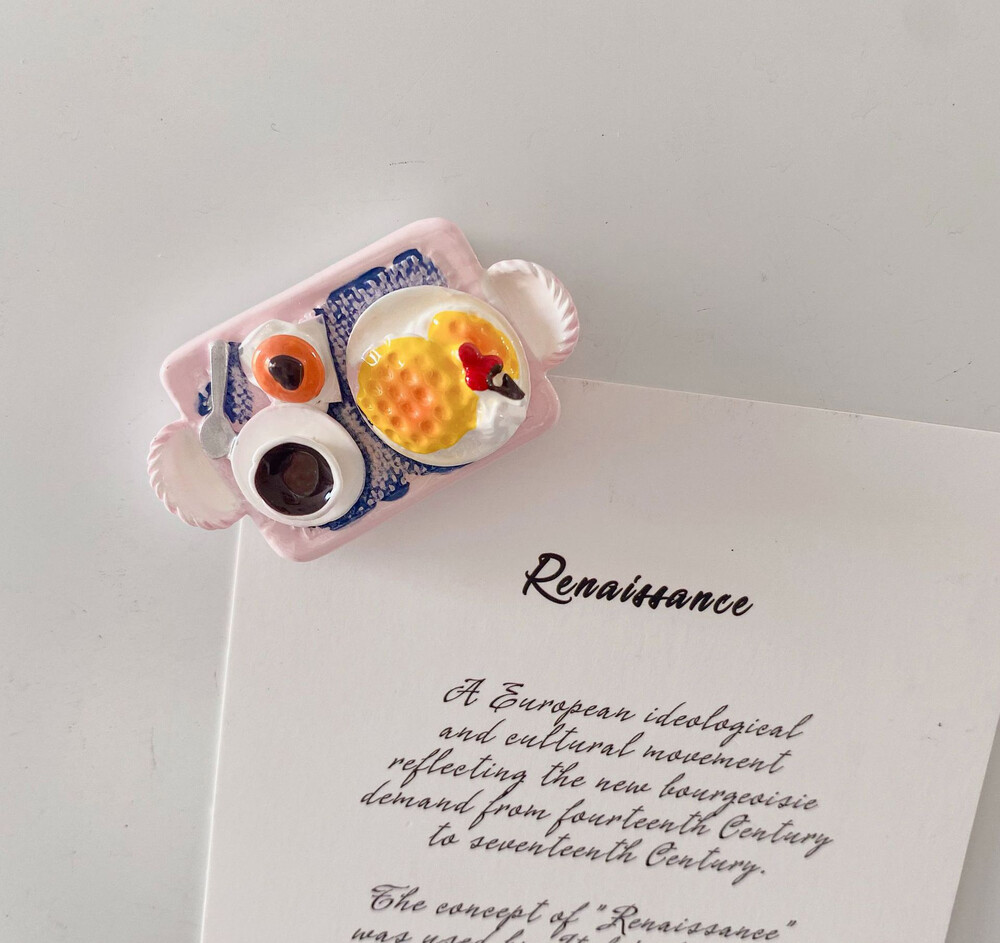 Renaissance
A European ideological
and cultural movement
reflecting the new bourgeoisie
demand from fourteenth Century
to seventeenth Century.
The concept of "Renaissance"
was used